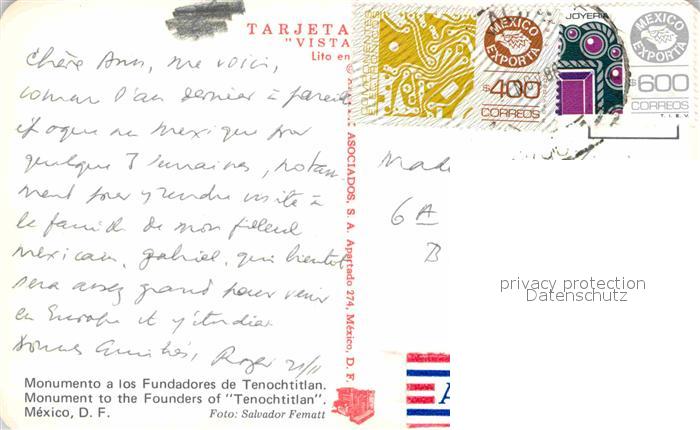 TARJETA
"VISTA
Lito en
Chère Ann, me voici,
comme l'an dernier à pareille
époque au Mexique pour
quelque 3 semaines, notam
ment pour y rendre visite à
la famille de mon filleul
mexicain, Gabriel, qui bientôt
sera assez grand pour venir
en Europe et y étudier.
Bonnes Amitiés, Roger 21/11
Monumento a los Fundadores de Tenochtitlan.
Monument to the Founders of "Tenochtitlan".
México, D. F.
Foto: Salvador Fematt
ASOCIADOS, S. A. Apartado 274, México, D. F.
MEXICO
EXPORTA
$400
CORREOS
JOYERIA
MEXICO
EXPORTA
$600
CORREOS
T.I.E.V.
6 A
B
privacy protection
Datenschutz